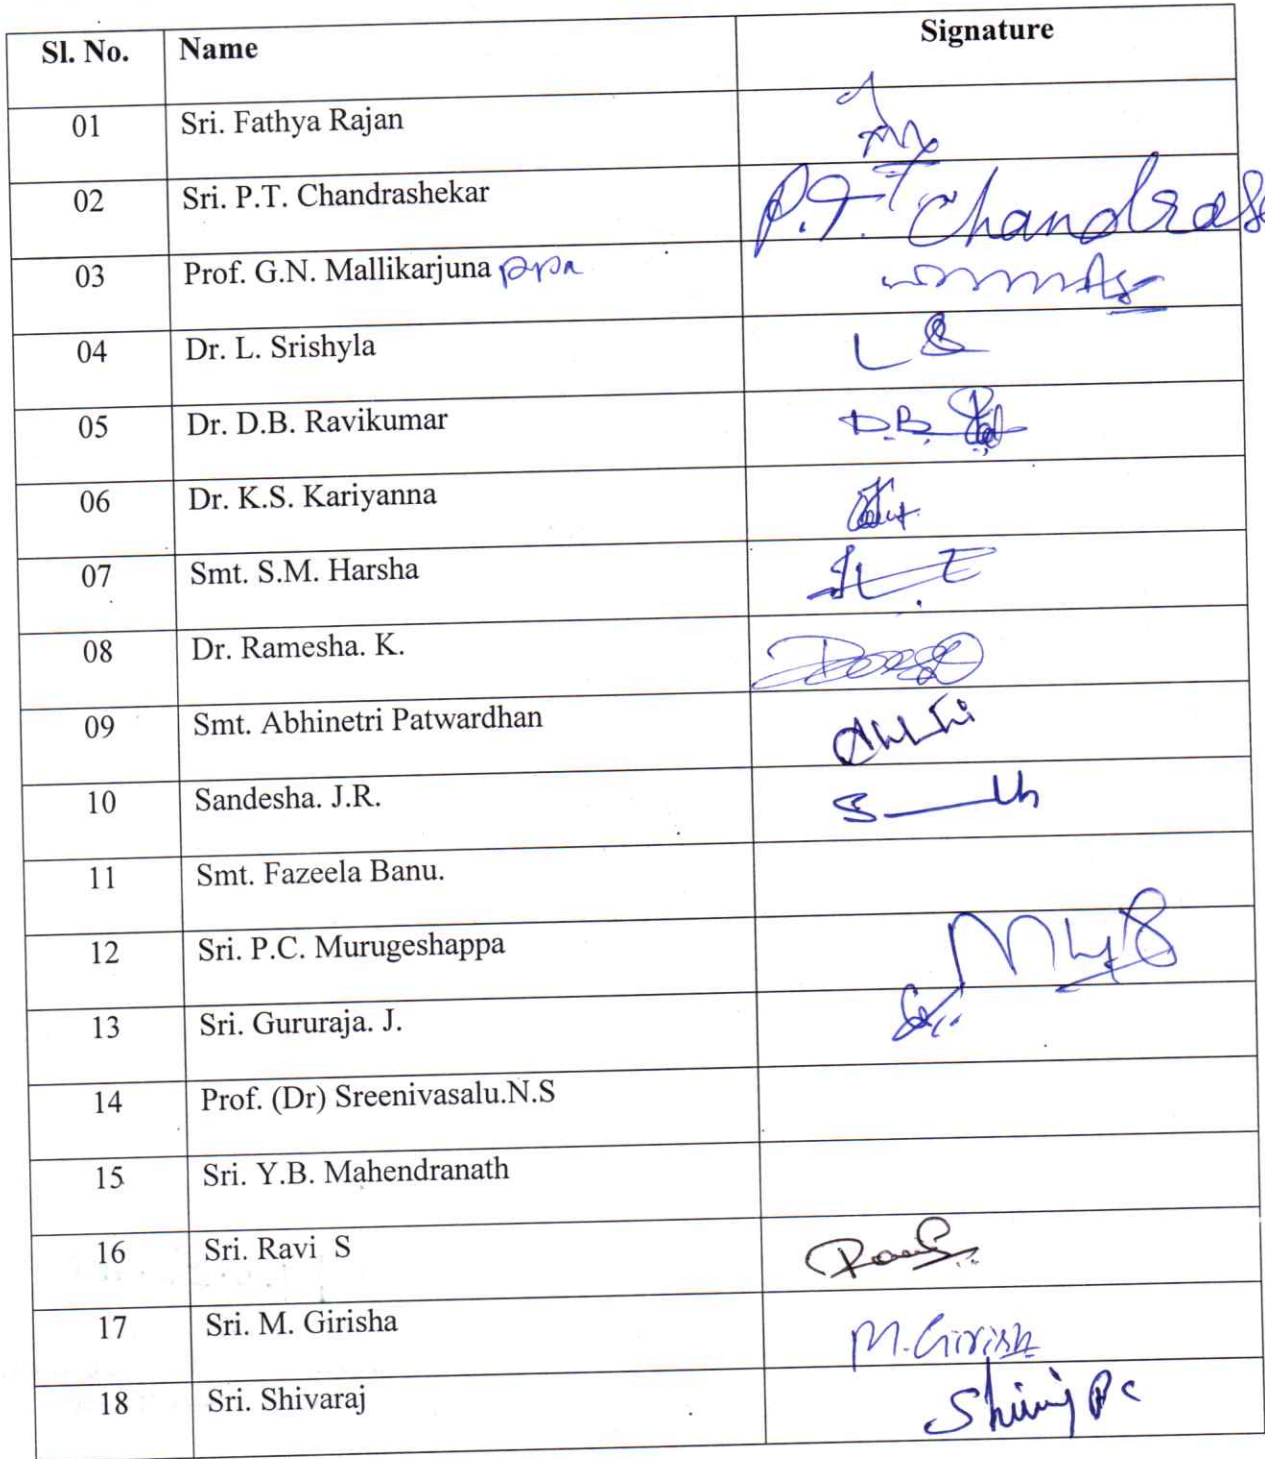 Sl. No. Name Signature
01 Sri. Fathya Rajan
02 Sri. P.T. Chandrashekar P.T. Chandras
03 Prof. G.N. Mallikarjuna ppa
04 Dr. L. Srishyla L S
05 Dr. D.B. Ravikumar D.B.
06 Dr. K.S. Kariyanna
07 Smt. S.M. Harsha
08 Dr. Ramesha. K.
09 Smt. Abhinetri Patwardhan
10 Sandesha. J.R.
11 Smt. Fazeela Banu.
12 Sri. P.C. Murugeshappa
13 Sri. Gururaja. J.
14 Prof. (Dr) Sreenivasalu.N.S
15 Sri. Y.B. Mahendranath
16 Sri. Ravi S
17 Sri. M. Girisha M. Girish
18 Sri. Shivaraj